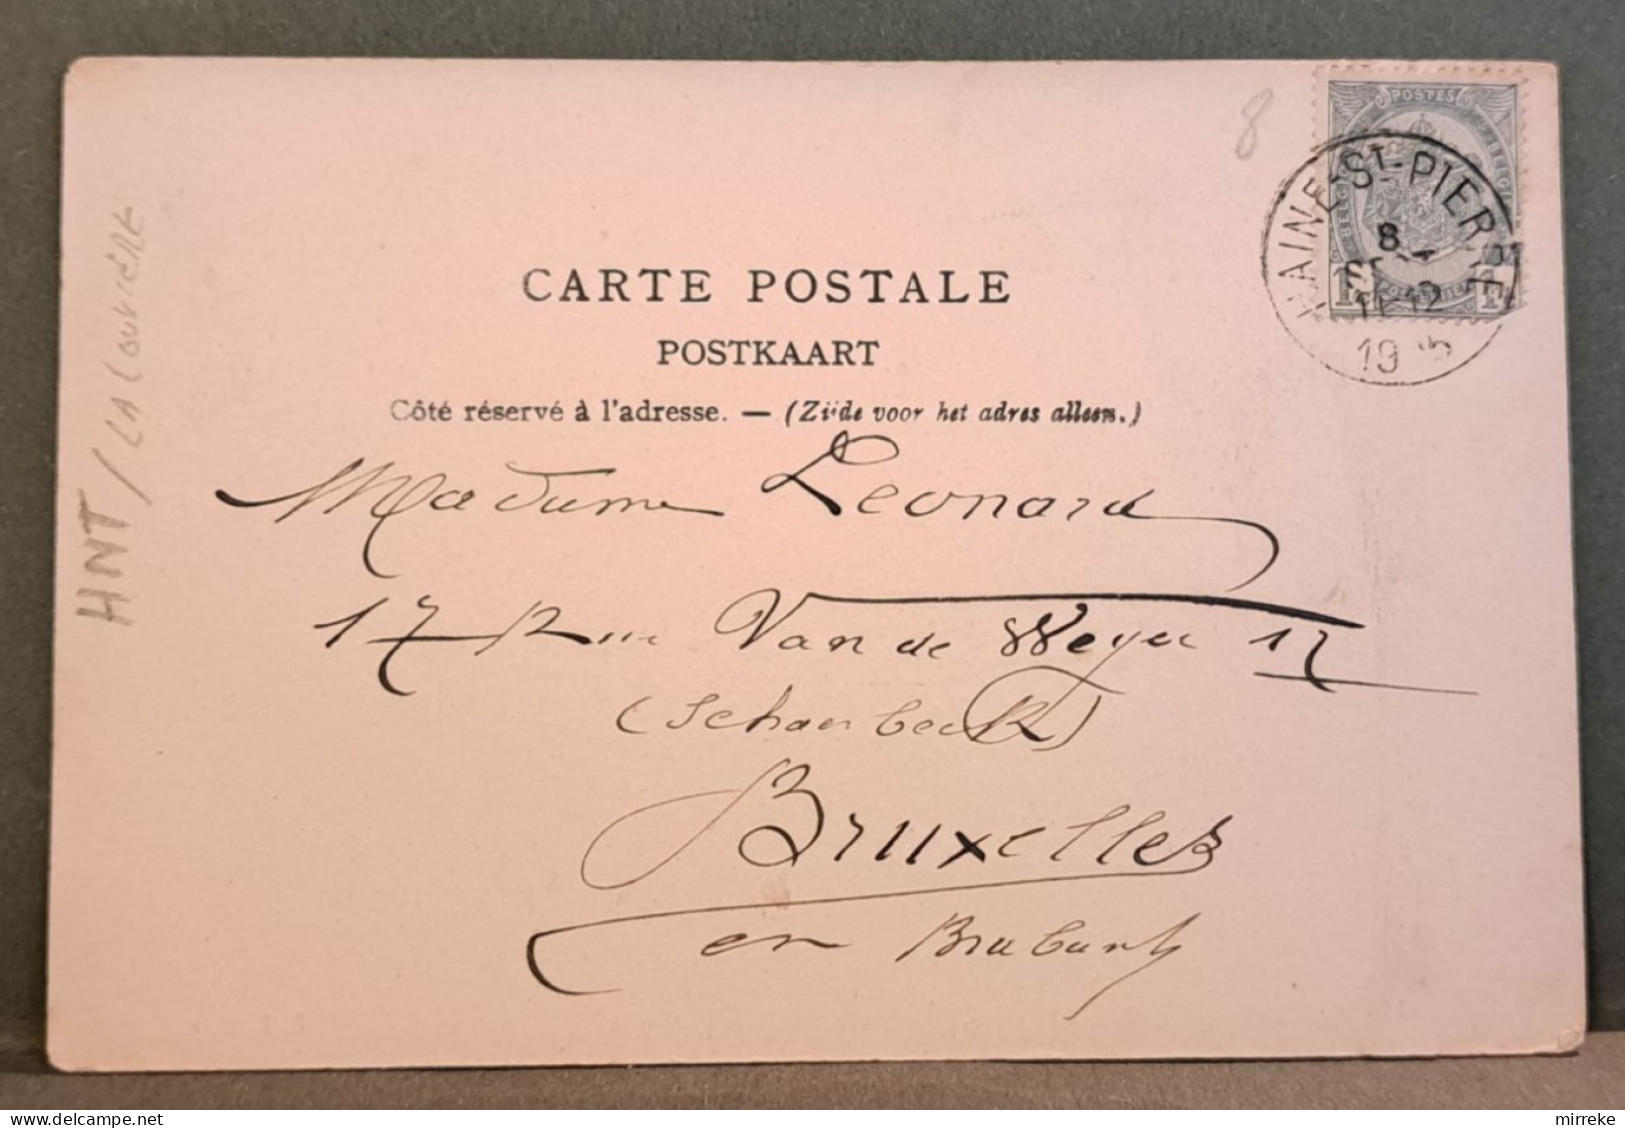 8
POSTES
BELGIQUE
HAINE-ST-PIERRE
8
11-12
19 5
1 1
CARTE POSTALE
POSTKAART
Côté réservé à l'adresse. — (Zijde voor het adres alleen.)
Madame Leonard
17 Rue Van de Weyer 17
(Schaerbeek)
Bruxelles
en Brabant
HNT / LA LOUVIÈRE
mirreke